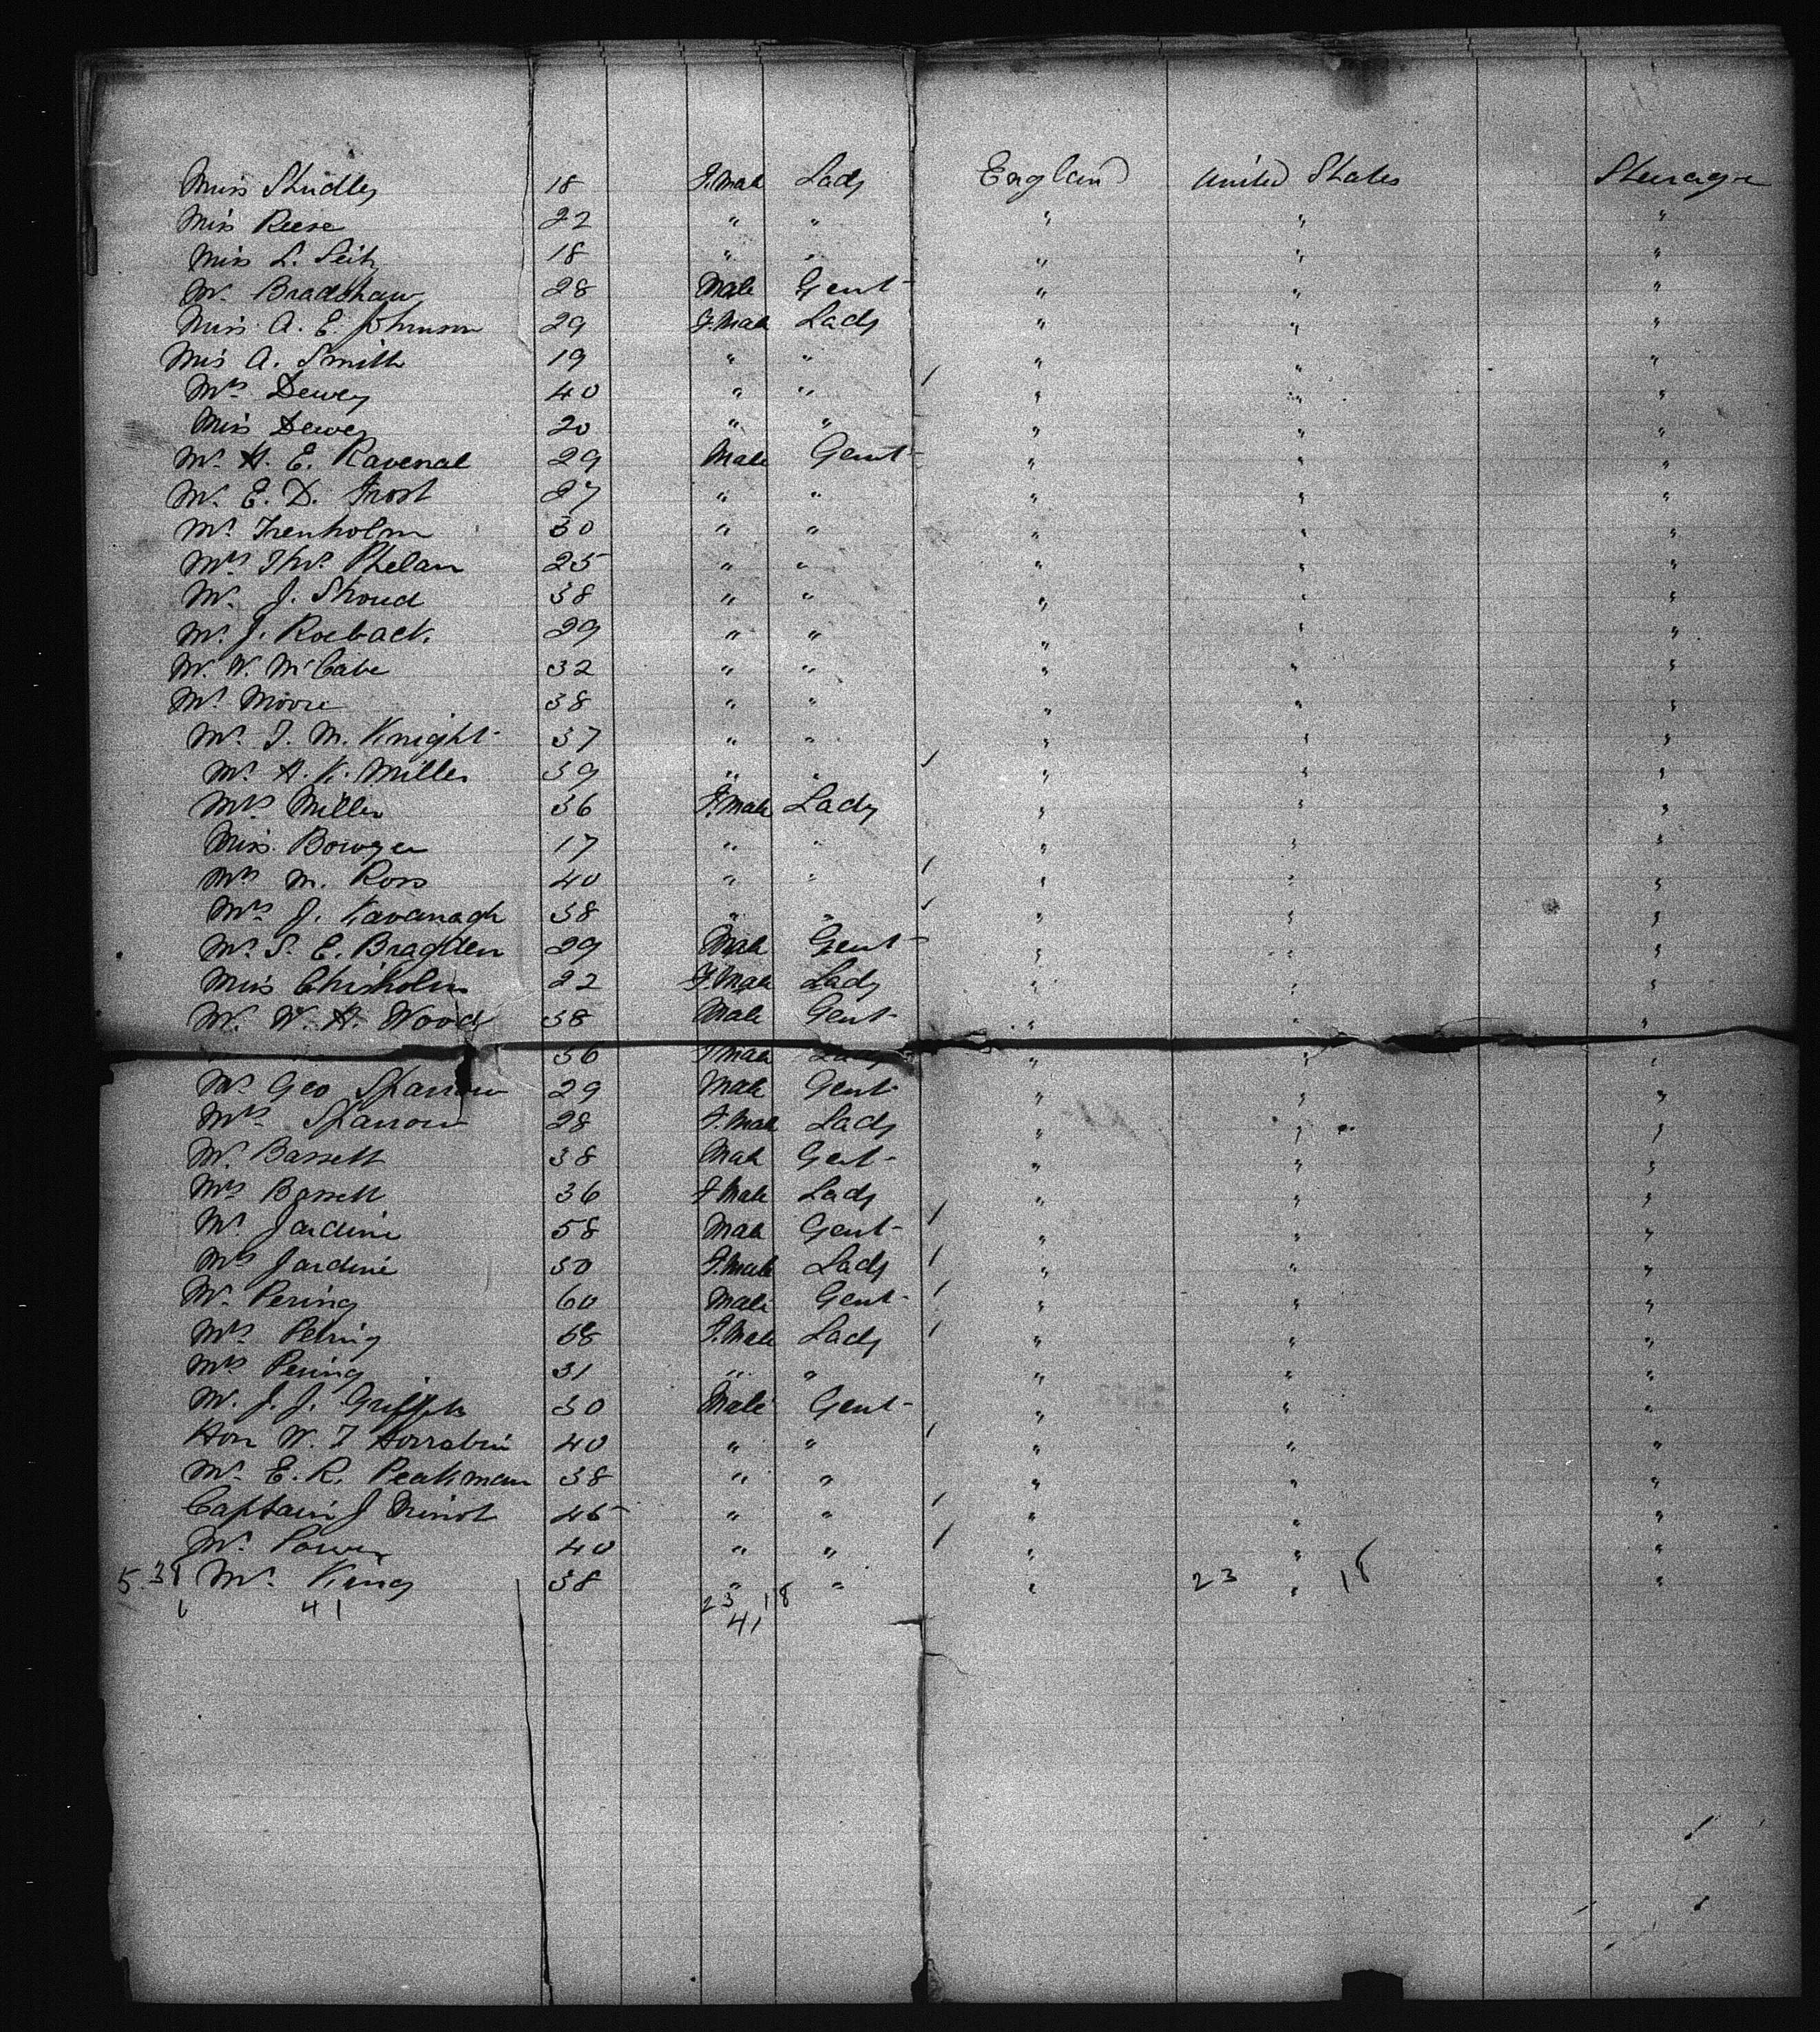 Miss Shidley 18 F.Male Lady England United States Steerage
Miss Reese 22 " " " " "
Miss L. Seitz 18 " " " " "
Mr. Bradshaw 28 Male Gent " " "
Miss A. E. Johnson 29 F.Male Lady " " "
Miss A. Smith 19 " " " " "
Mrs Dewey 40 " " " " "
Miss Dewey 20 " " " " "
Mr. H. E. Ravenal 29 Male Gent " " "
Mr. E. D. Frost 27 " " " " "
Mr Trenholm 30 " " " " "
Thos Phelan 25 " " " " "
Mr. J. Stroud 38 " " " " "
Mr. J. Roeback 29 " " " " "
Mr. W. McCabe 32 " " " " "
Mr Moore 38 " " " " "
Mr. T. M. Knight 37 " " " " "
Mr. A. K. Miller 39 " " " " "
Mrs Miller 36 F.Male Lady " " "
Miss Bowyer 17 " " " " "
Mrs M. Ross 40 " " " " "
Mrs J. Kavanagh 38 " " " " "
Mr. S. E. Bragden 29 Male Gent " " "
Miss Chisholm 22 F.Male Lady " " "
Mr. W. H. Wood 38 Male Gent " " "
36 F.Male Lady " " "
Mr Geo Sparrow 29 Male Gent " " "
Mrs Sparrow 28 F.Male Lady " " "
Mr. Bassett 38 Male Gent " " "
Mrs Bassett 36 F.Male Lady " " "
Mr. Jardine 58 Male Gent " " "
Mrs Jardine 50 F.Male Lady " " "
Mr. Pering 60 Male Gent " " "
Mrs Pering 58 F.Male Lady " " "
Mrs Pering 31 " " " " "
Mr. J. J. Griffith 30 Male Gent " " "
Hon W. T Horrabin 40 " " " " "
Mr. E. R. Peakman 38 " " " " "
Captain J Minot 45 " " " " "
Mr. Power 40 " " " " "
5.38 Mr. King 38 " " " 23 " 18 "
6 41 23 18
41